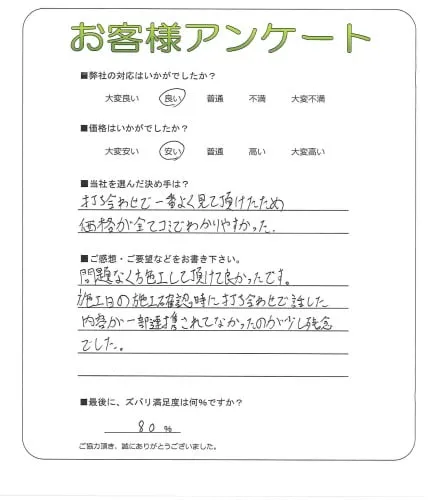 お客様アンケート
■弊社の対応はいかがでしたか?
大変良い 良い 普通 不満 大変不満
■価格はいかがでしたか?
大変安い 安い 普通 高い 大変高い
■当社を選んだ決め手は?
打ち合わせで一番よく見て頂けたため
価格が全てコミでわかりやすかった.
■ご感想・ご要望などをお書き下さい。
問題なくち施工して頂けて良かったです。
施工日の施工確認時に打ち合わせで話した
内容が一部連携されてなかったのが少し残念
でした。
■最後に、ズバリ満足度は何%ですか?
80 %
ご協力頂き、誠にありがとうございました。